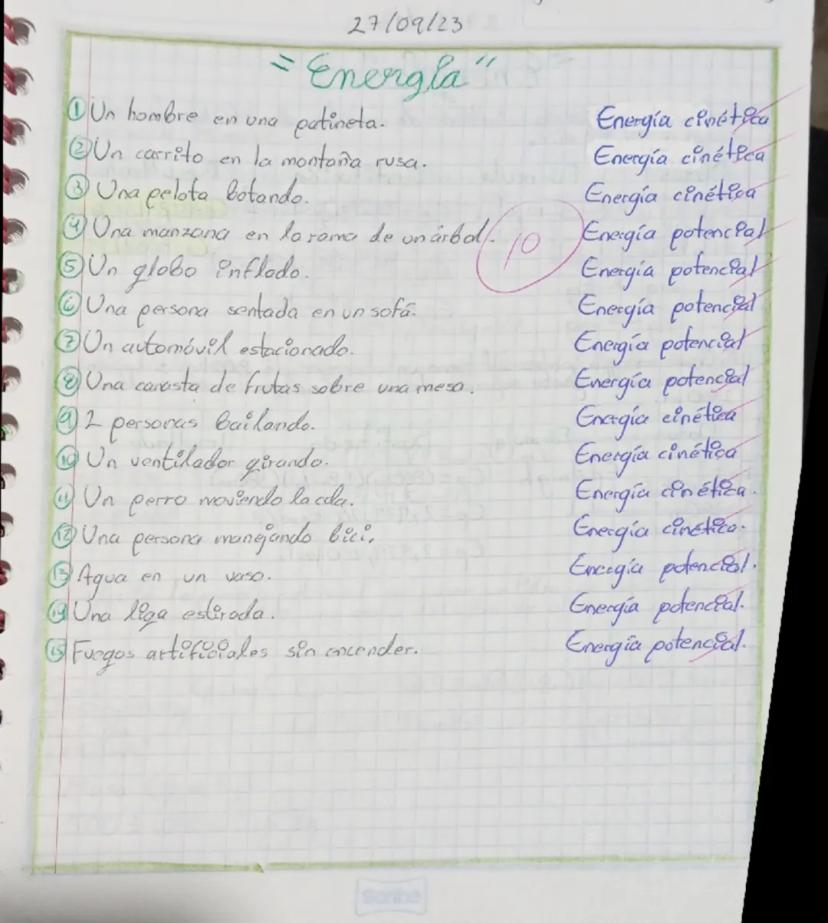 27/09/23
"Energía"
① Un hombre en una patineta. Energía cinética
② Un carrito en la montaña rusa. Energía cinética
③ Una pelota botando. Energía cinética
④ Una manzana en la rama de un árbol. Energía potencial
10
⑤ Un globo inflado. Energía potencial
⑥ Una persona sentada en un sofá. Energía potencial
⑦ Un automóvil estacionado. Energía potencial
⑧ Una canasta de frutas sobre una mesa. Energía potencial
⑨ 2 personas bailando. Energía cinética
⑩ Un ventilador girando. Energía cinética
⑪ Un perro moviendo la cola. Energía cinética.
⑫ Una persona manejando bici. Energía cinética.
⑬ Agua en un vaso. Energía potencial.
⑭ Una liga estirada. Energía potencial.
⑮ Fuegos artificiales sin encender. Energía potencial.
Scribe